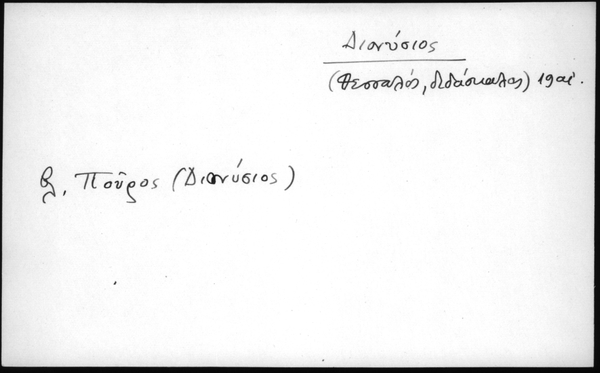 Διονύσιος
(Θεσσαλός, διδάσκαλος) 19 αἰ.
βλ. Ποῦρος (Διονύσιος)